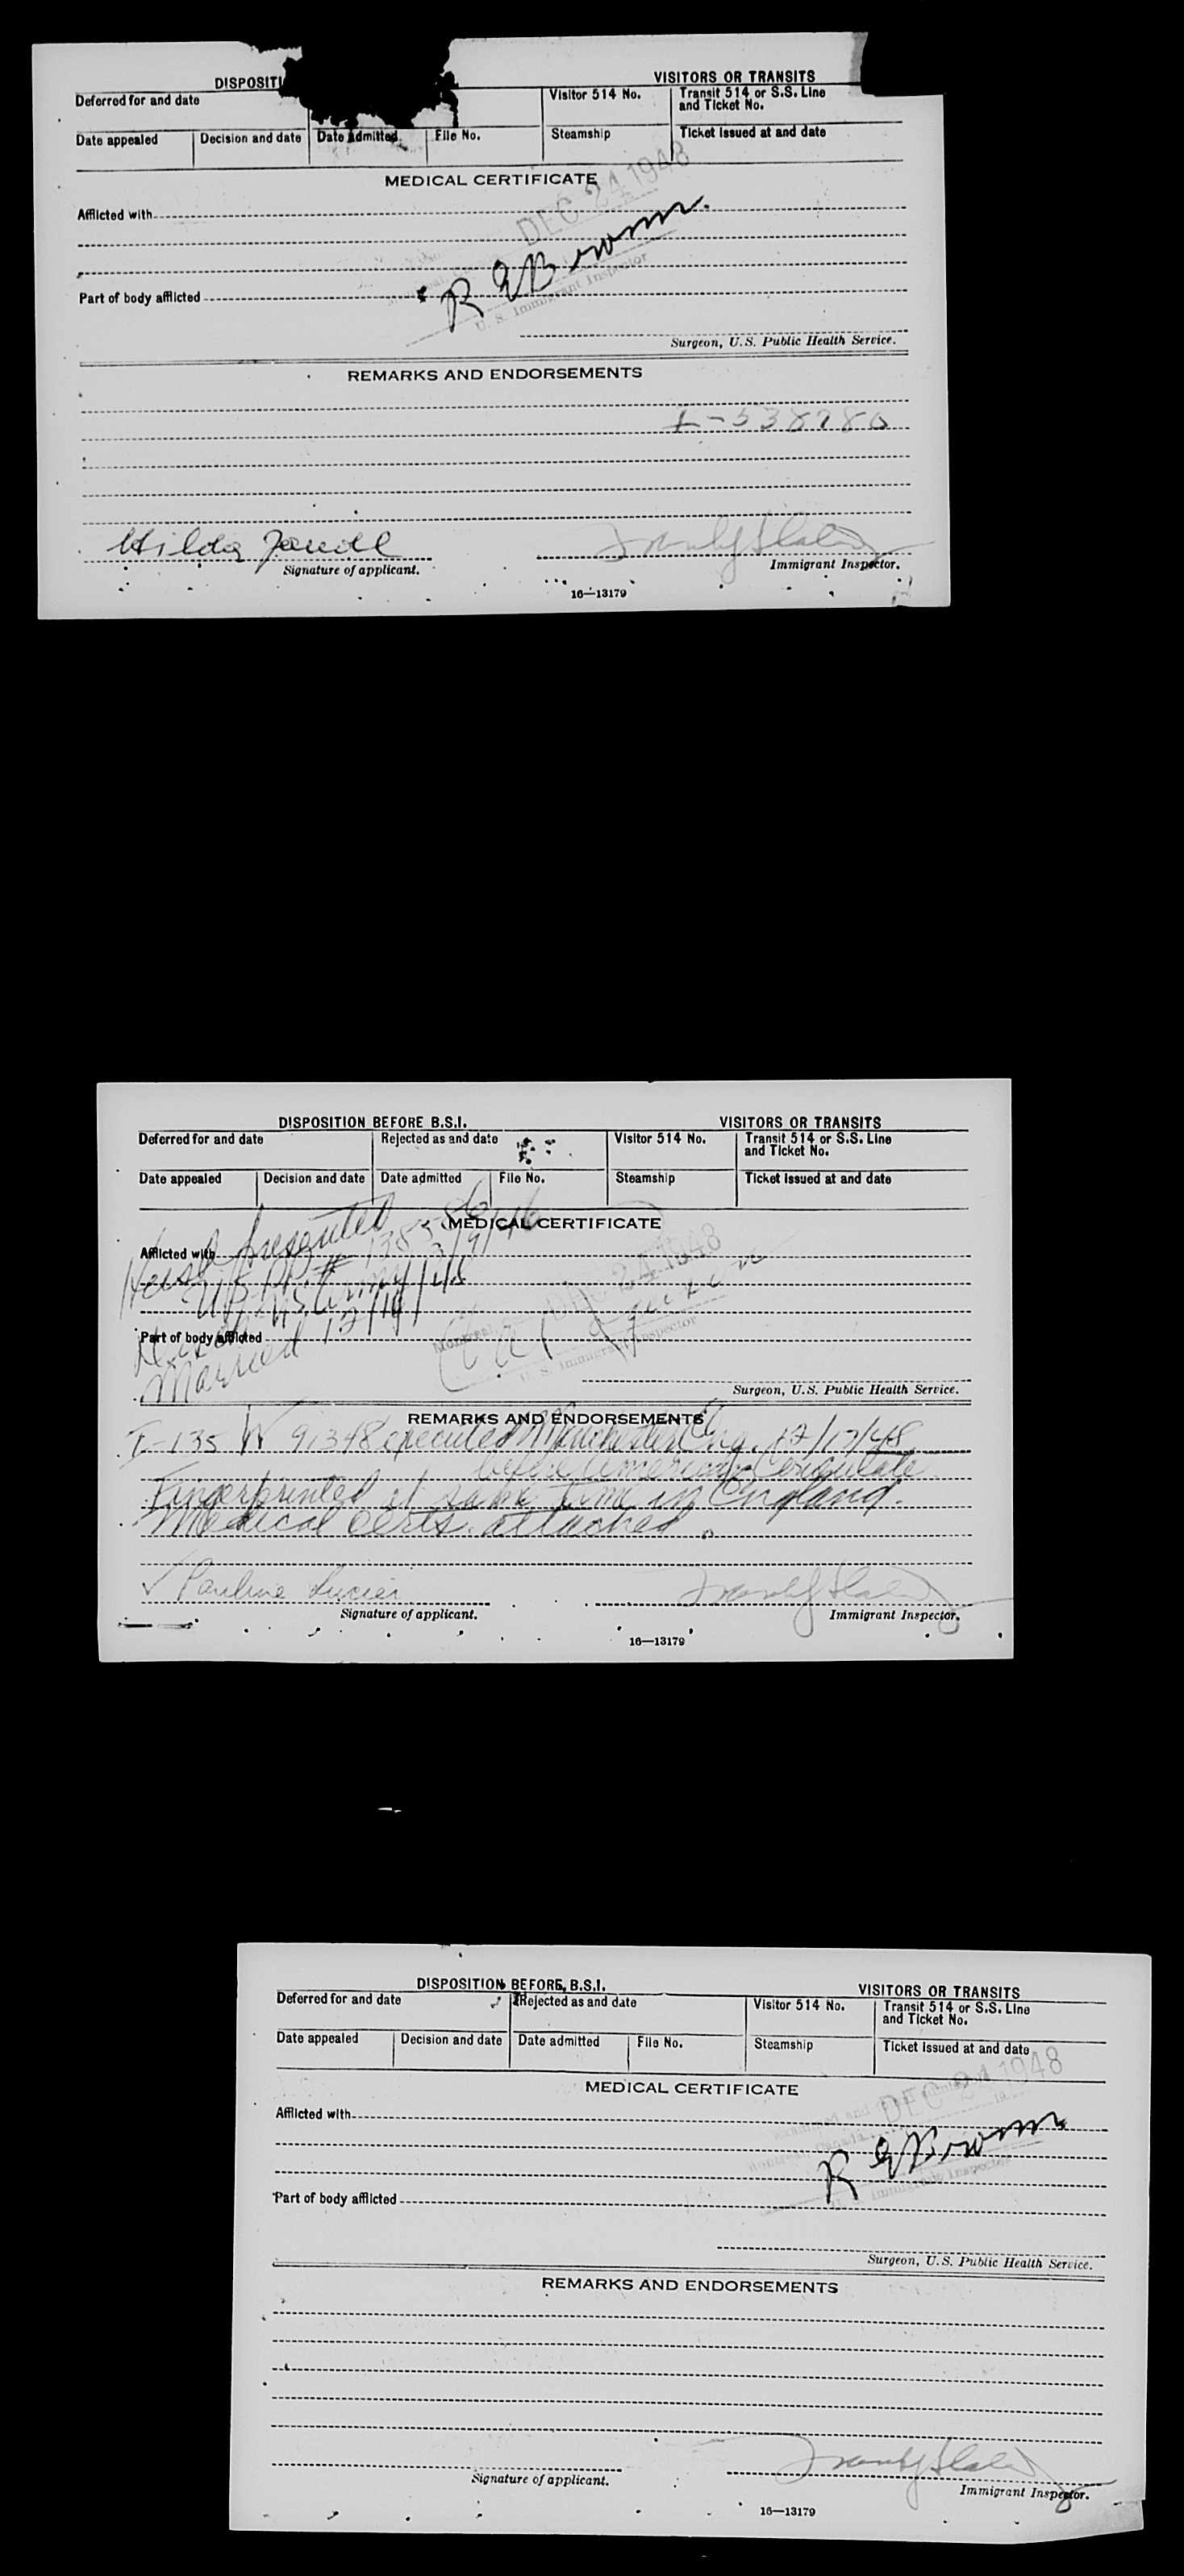 DISPOSITI
VISITORS OR TRANSITS
Deferred for and date
Visitor 514 No.
Transit 514 or S.S. Line
and Ticket No.
Date appealed
Decision and date
Date admitted
File No.
Steamship
Ticket issued at and date
MEDICAL CERTIFICATE
DEC 24 1948
Afflicted with
R E Brown
Part of body afflicted
U. S. Immigrant Inspector
Surgeon, U.S. Public Health Service.
REMARKS AND ENDORSEMENTS
Hilda
Signature of applicant.
Immigrant Inspector.
16—13179
DISPOSITION BEFORE B.S.I.
VISITORS OR TRANSITS
Deferred for and date
Rejected as and date
Visitor 514 No.
Transit 514 or S.S. Line
and Ticket No.
Date appealed
Decision and date
Date admitted
File No.
Steamship
Ticket issued at and date
MEDICAL CERTIFICATE
presented
Afflicted with
3/9/46
24 1948
U.S. Army
Part of body afflicted
Married 12/
Montreal
U. S. Immigrant Inspector
Surgeon, U.S. Public Health Service.
REMARKS AND ENDORSEMENTS
I-135 executed Manchester Eng. 12/17/48
before American Consulate
Fingerprinted at same time in England.
Medical certs. attached.
✓ Pauline Lucier
Signature of applicant.
Immigrant Inspector.
16—13179
DISPOSITION BEFORE B.S.I.
VISITORS OR TRANSITS
Deferred for and date
Rejected as and date
Visitor 514 No.
Transit 514 or S.S. Line
and Ticket No.
Date appealed
Decision and date
Date admitted
File No.
Steamship
Ticket issued at and date
MEDICAL CERTIFICATE
DEC 24 1948
Afflicted with
R E Brown
Part of body afflicted
Surgeon, U.S. Public Health Service.
REMARKS AND ENDORSEMENTS
Signature of applicant.
Immigrant Inspector.
16—13179